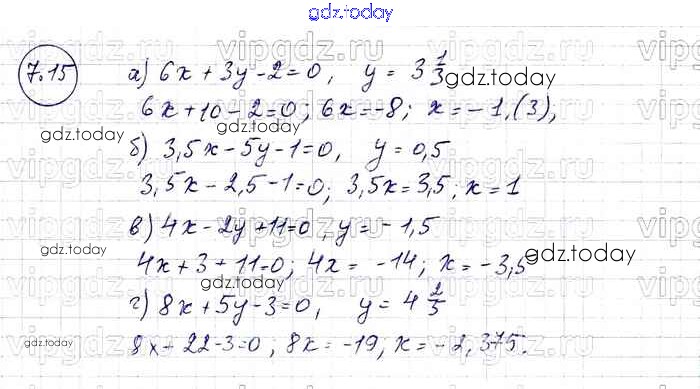 gdz.today
7.15
а) 6x + 3y - 2 = 0, y = 3 1/3 gdz.today
6x + 10 - 2 = 0; 6x = -8; x = -1,(3);
gdz.today gdz.today
б) 3,5x - 5y - 1 = 0, y = 0,5
3,5x - 2,5 - 1 = 0; 3,5x = 3,5; x = 1
в) 4x - 2y + 11 = 0, y = -1,5
gdz.today
4x + 3 + 11 = 0; 4x = -14; x = -3,5 gdz.today
г) 8x + 5y - 3 = 0, y = 4 2/5
gdz.today
8x + 22 - 3 = 0; 8x = -19, x = -2,375.
vipgdz.ru